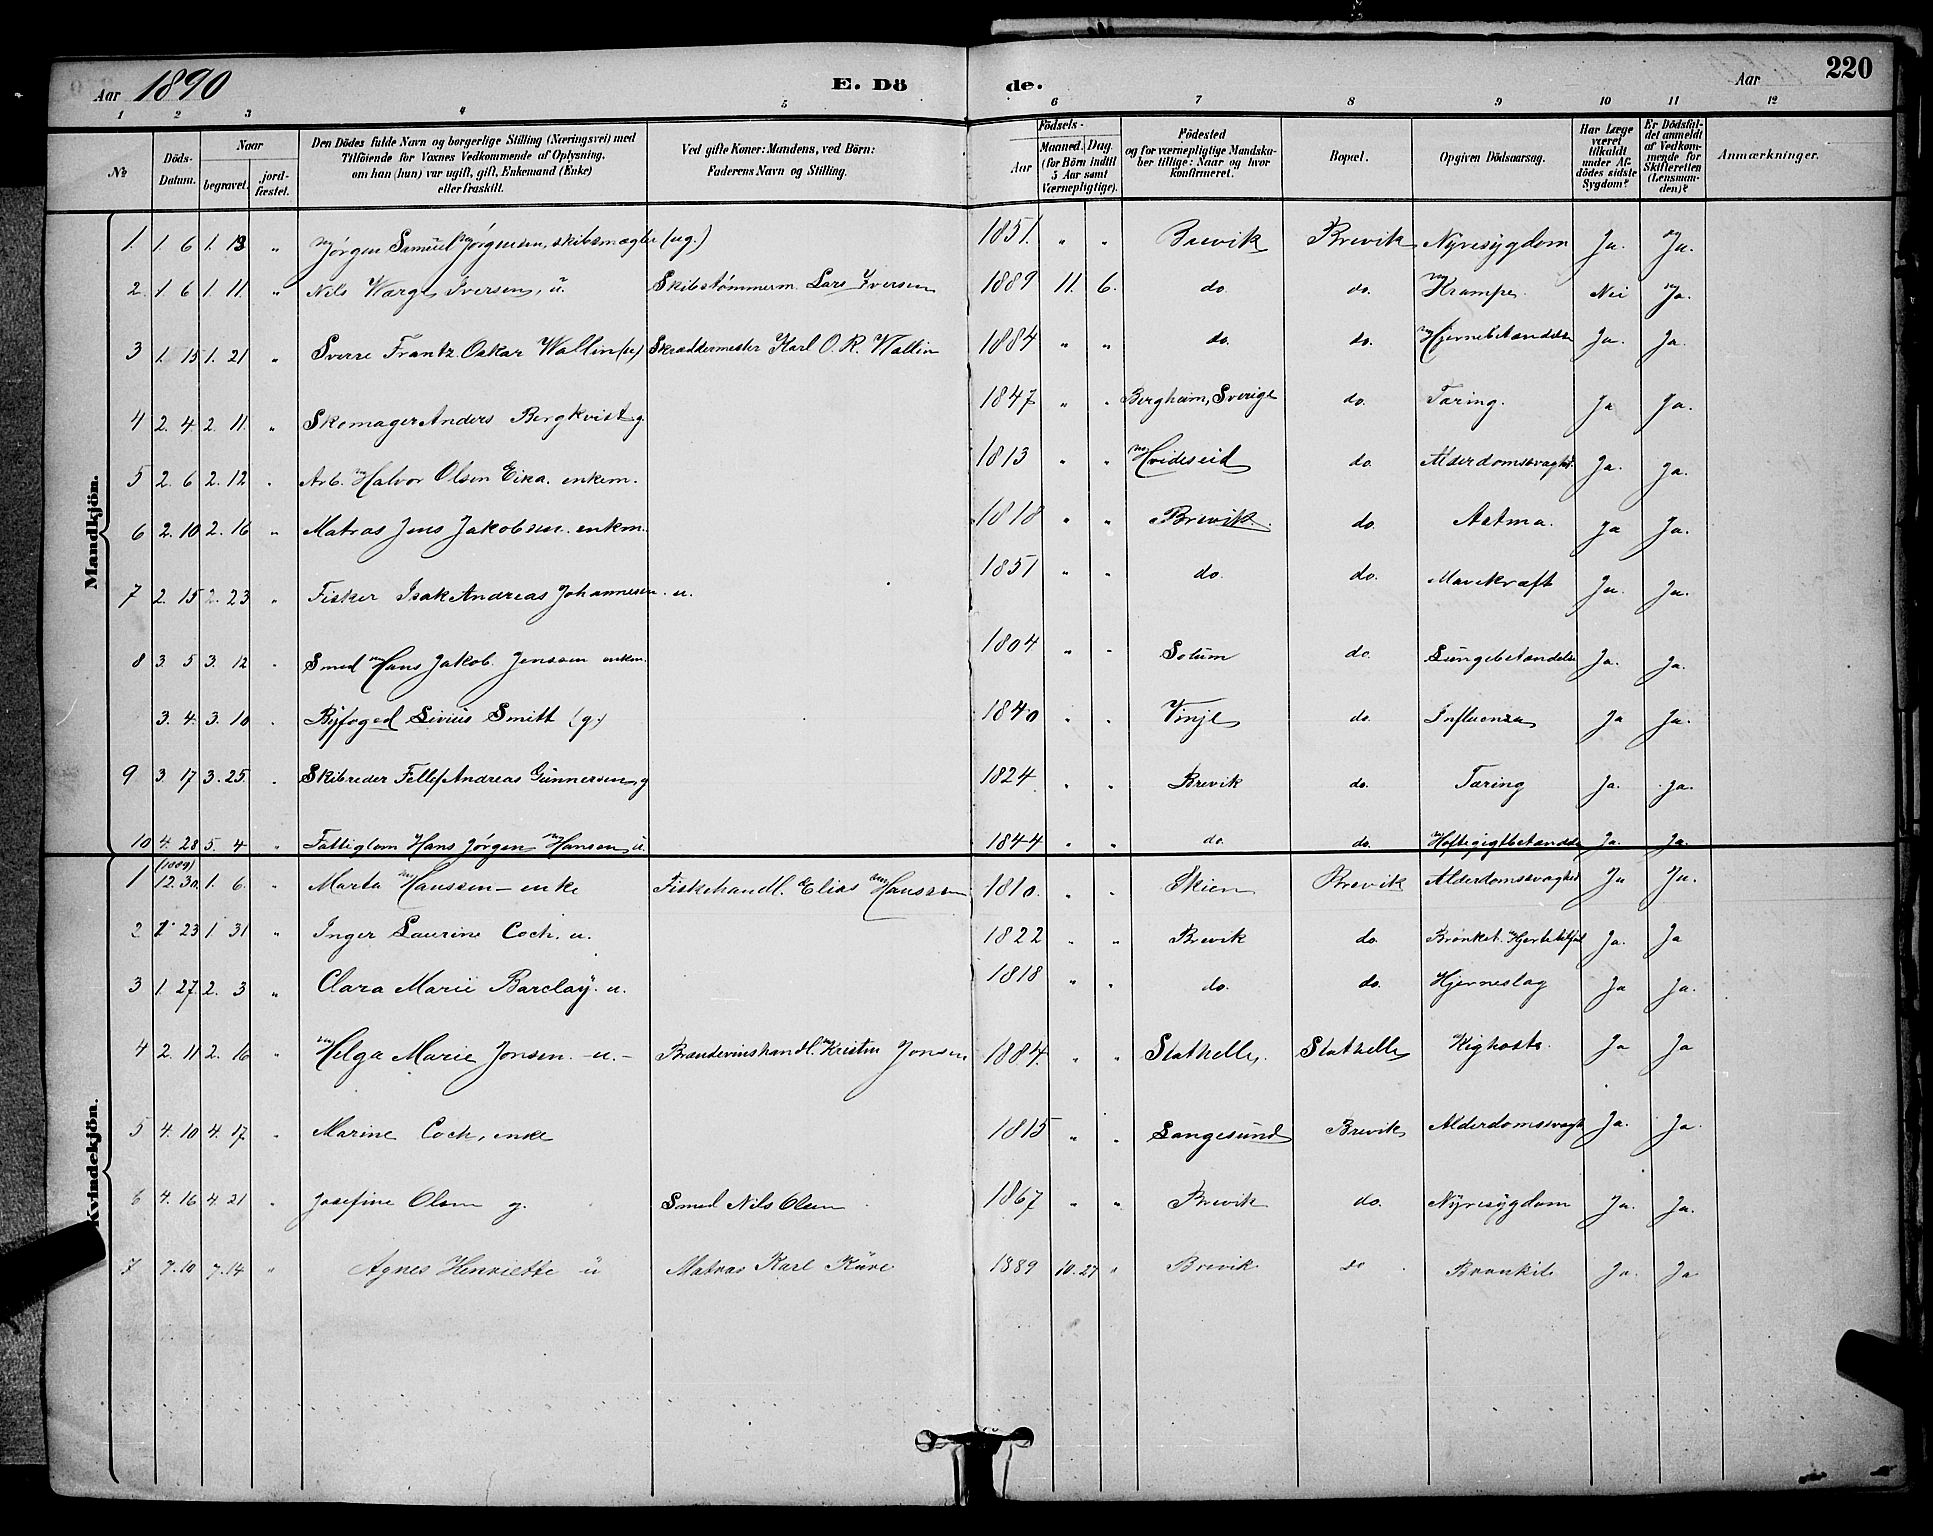 Aar 1890 E. Dö de. Aar 220
1 2 3 4 5 6 7 8 9 10 11 12
No
Döds-Datum.
Naar
begravet.
jord-fæstet.
Den Dödes fulde Navn og borgerlige Stilling (Næringsvei) med
Tilföiende for Voxnes Vedkommende af Oplysning,
om han (hun) var ugift, gift, Enkemand (Enke)
eller fraskilt.
Ved gifte Koner: Mandens, ved Börn:
Faderens Navn og Stilling.
Födsels-
Aar
Maaned. Dag.
(for Börn indtil
5 Aar samt
Værnepligtige).
Födested
og for værnepligtige Mandska-
ber tillige: Naar og hvor
konfirmeret.
Bopæl.
Opgiven Dödsaarsag.
Har Læge
været
tilkaldt
under Af-
dödes sidste
Sygdom?
Er Dödsfal-
det anmeldt
af Vedkom-
mende for
Skifteretten
(Lensman-
den)?
Anmærkninger.
Mandkjön.
1. 1. 6 1. 13 " Jørgen Samuel Jørgensen, skibsmægler (ug.) 1851. " " Brevik Brevik Nyresygdom Ja. Ja.
2. 1. 6 1. 11. " Nils Warge Iversen, u. Skibstømmerm. Lars Iversen 1889 11. 6. do. do. Krampe. Nei Ja.
3 1. 15 1. 21 " Sverre Frantz Oskar Wallin (u) Skræddermester Karl O. R. Wallin 1884 " " do. do. Hjernebetændelse Ja. Ja.
4 2. 4. 2. 11. " Skomager Anders Bergkvist g. 1847 " " Bergheim, Sverige do. Tæring. Ja Ja.
5 2. 6 2. 12 " Arb. Halvor Olsen Eika. enkem. 1813 " " Hvideseid do. Alderdomssvaghed. Ja. Ja.
6 2. 10 2. 16 " Matros Jens Jakobsen. enkm. 1818 " " Brevik. do. Astma. Ja Ja.
7 2. 15 2. 23 " Fisker Isak Andreas Johannesen. u. 1851 " " do. do. Mavekræft Ja. Ja.
8 3. 5 3. 12 " Smed Hans Jakob Jenssen enkm. 1804 " " Solum do. Lungebetændelse Ja. Ja.
3. 4. 3. 10 " Byfoged Livius Smitt (g.) 1840 " " Vinje do. Influenza Ja Ja.
9 3. 17 3. 25. " Skibreder Tellef Andreas Gunnersen, g 1824 " " Brevik do. Tæring Ja. Ja.
10 4. 28 5. 4 " Fattiglem Hans Jørgen Hansen u. 1844 " " do. do. Hoftegigtbetændelse Ja. Ja.
Kvindekjön.
1 (1889) 12. 30. 1. 6. " Marta Hanssen - enke Fiskehandl. Elias Hanssen 1810. " " Skien Brevik Alderdomssvaghed Ja Ja.
2 1. 23 1. 31 " Inger Laurine Coch. u. 1822 " " Brevik do. Ja. Ja
3 1. 27. 2. 3 " Clara Marie Barclay. u. 1818 " " do. do. Hjerneslag Ja Ja.
4 2. 11 2. 16 " Helga Marie Jonsen. - u. - Brændevinshandl. Kristen Jonsen 1884. " " Stathelle. Stathelle Kighoste. Ja Ja
5 4. 10 4. 17 " Marine Coch, enke 1815 " " Langesund Brevik Alderdomssvagh Ja. Ja.
6 4. 16 4. 21 " Josefine Olsen g. Smed Nils Olsen 1867 " " Brevik do. Nyresygdom Ja. Ja.
7 7. 10 7. 14 " Agnes Henriette u Matros Karl Kure 1889 10. 27 " Brevik do Bronkit Ja. Ja